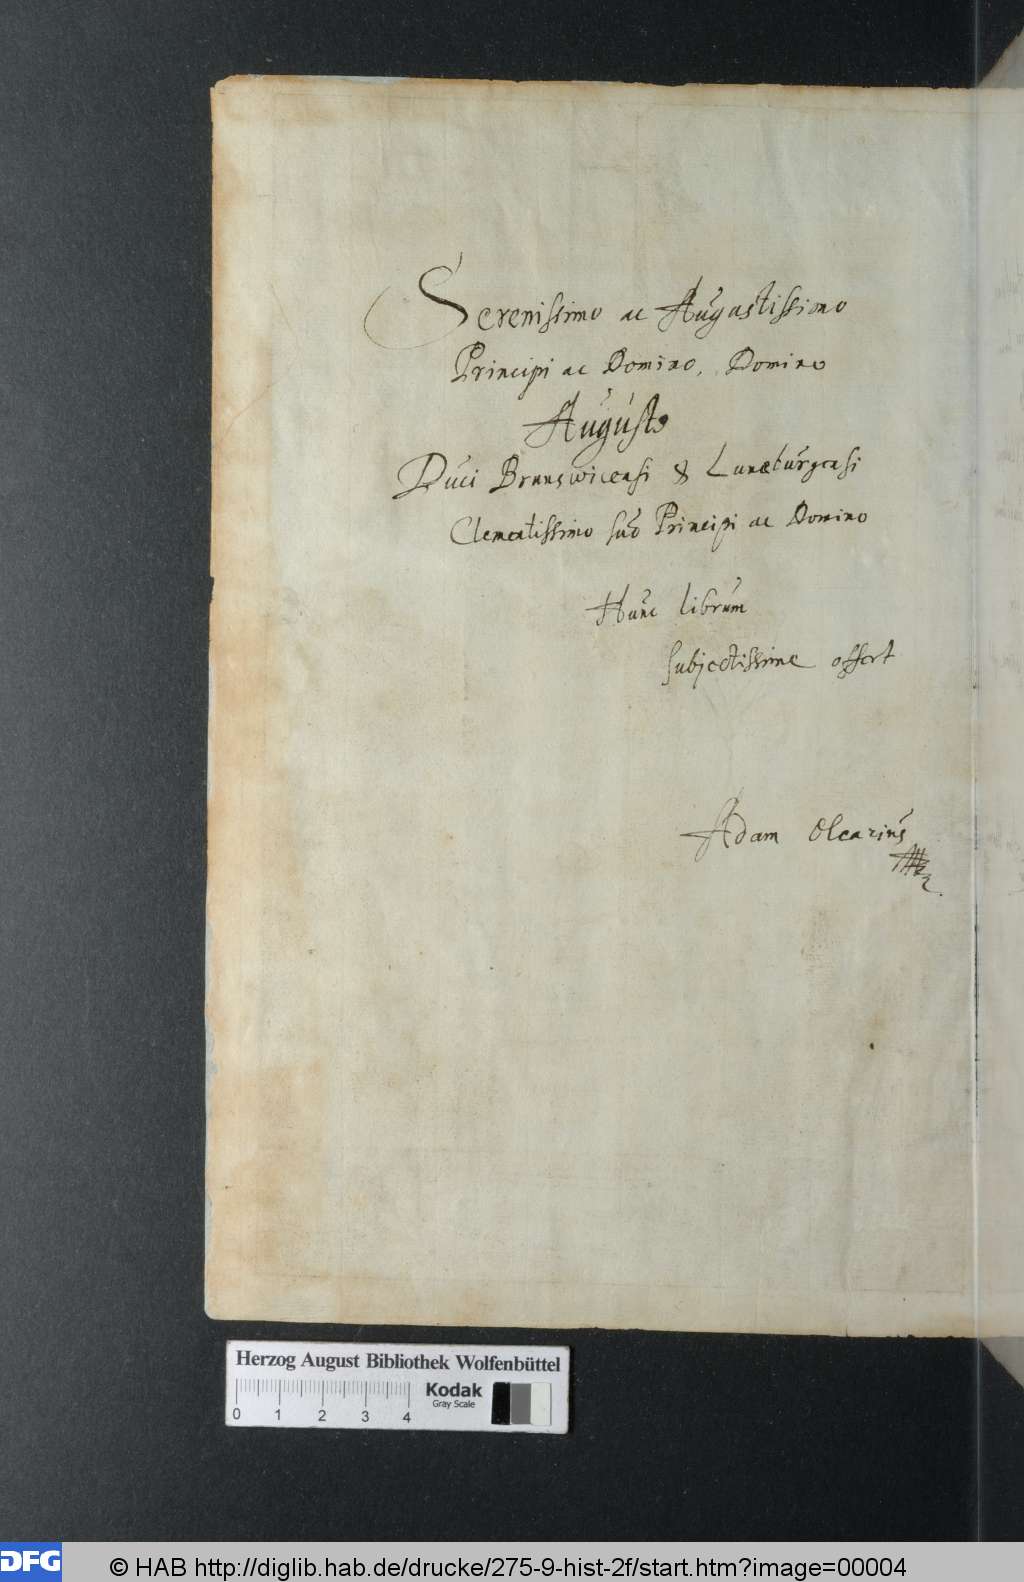 Serenissimo ac Augustissimo
Principi ac Domino, Domino
Augusto
Duci Brunswicensi & Lunæburgensi
Clementissimo suo Principi ac Domino
Hunc librum
subjectissime offert
Adam Olearius
Herzog August Bibliothek Wolfenbüttel
Kodak
Gray Scale
0 1 2 3 4
DFG © HAB http://diglib.hab.de/drucke/275-9-hist-2f/start.htm?image=00004